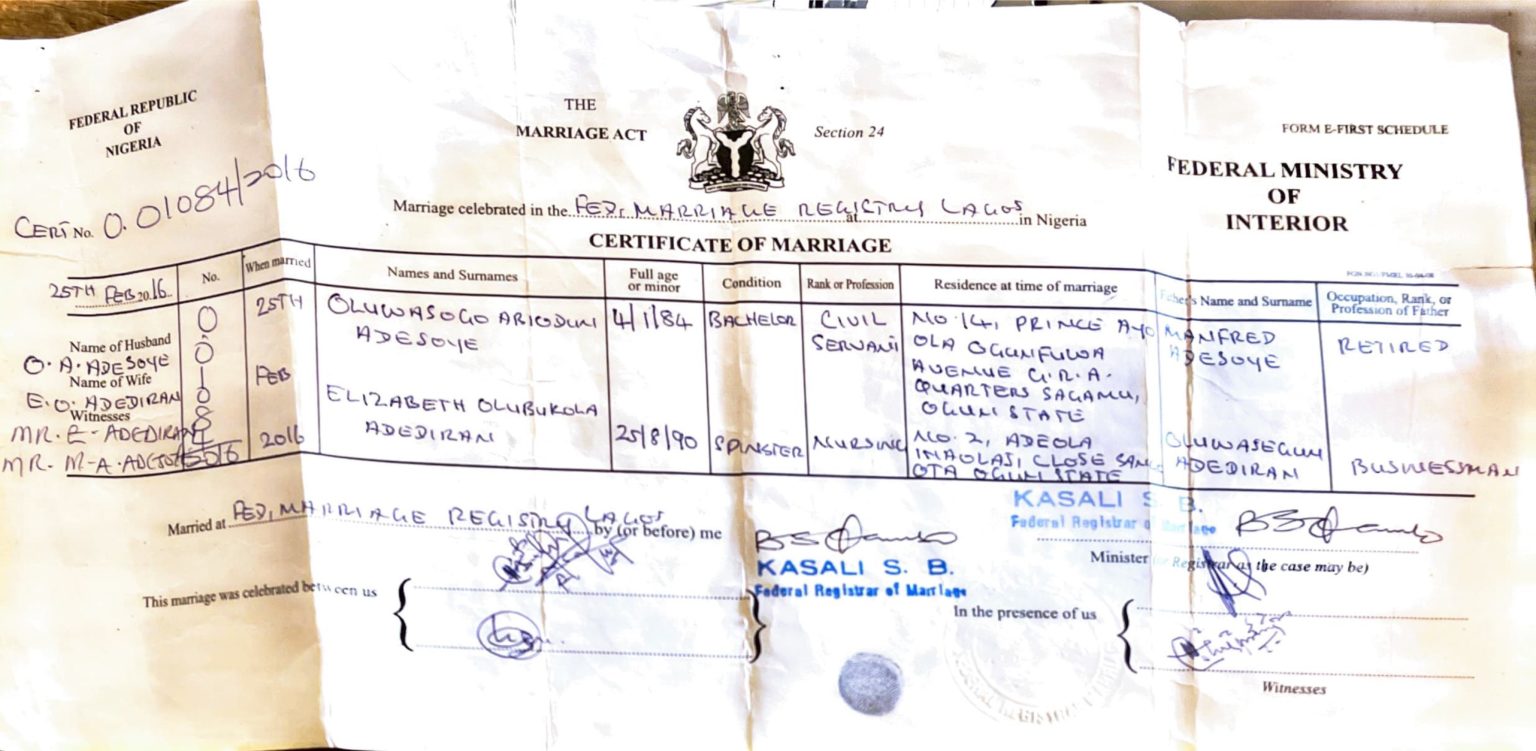 FEDERAL REPUBLIC
OF
NIGERIA
THE
MARRIAGE ACT
Section 24
FORM E-FIRST SCHEDULE
FEDERAL MINISTRY
OF
INTERIOR
CERT No. 0.01084/2016
Marriage celebrated in the FED. MARRIAGE REGISTRY at LAGOS in Nigeria
CERTIFICATE OF MARRIAGE
25TH FEB 2016
No.
When married
Names and Surnames
Full age
or minor
Condition
Rank or Profession
Residence at time of marriage
Father's Name and Surname
Occupation, Rank, or
Profession of Father
Name of Husband
O. A. ADESOYE
Name of Wife
E. O. ADEDIRAN
Witnesses
MR. E. ADEDIRAN
MR. M. A.
25TH
FEB
2016
OLUWASOGO ABIODUN
ADESOYE
4/1/84
BACHELOR
CIVIL
SERVANT
NO. 14, PRINCE AYO
OLA OGUNFUWA
AVENUE G.R.A.
QUARTERS SAGAMU,
OGUN STATE
MANFRED
ADESOYE
RETIRED
ELIZABETH OLUBUKOLA
ADEDIRAN
25/8/90
SPINSTER
NURSING
NO. 2, ADEOLA
CLOSE
OTA OGUN STATE
OLUWASEGUN
ADEDIRAN
BUSINESSMAN
Married at FED. MARRIAGE REGISTRY LAGOS by (or before) me
KASALI S. B.
Federal Registrar of Marriage
KASALI S. B.
Federal Registrar of Marriage
Minister (or Registrar as the case may be)
This marriage was celebrated between us
In the presence of us
Witnesses